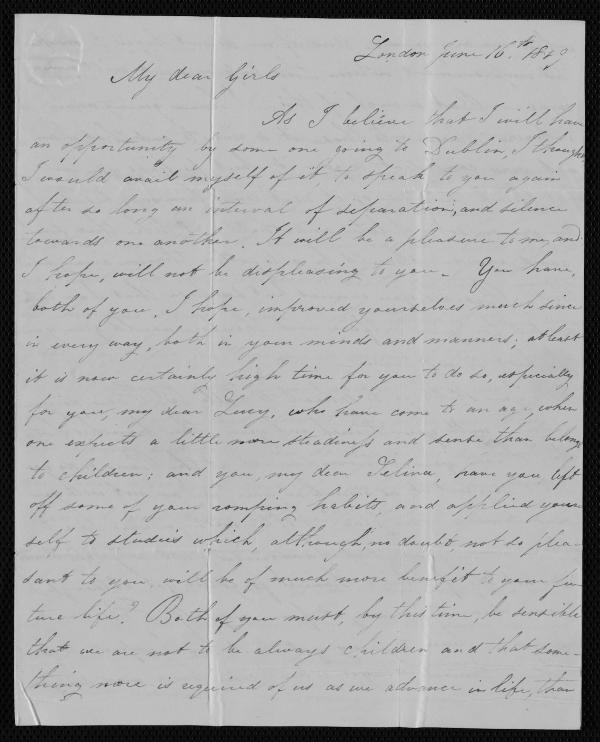 London June 16.th 1849
My dear Girls
As I believe that I will have
an opportunity by some one going to Dublin, I thought
I would avail myself of it, to speak to you again
after so long an interval of separation, and silence
towards one another. It will be a pleasure to me, and
I hope, will not be displeasing to you. You have,
both of you, I hope, improved yourselves much since
in every way, both in your minds and manners; at least
it is now certainly high time for you to do so, especially
for you, my dear Lucy, who have come to an age, when
one expects a little more steadiness and sense than belongs
to children; and you, my dear Felina, have you left
off some of your romping habits, and applied your-
self to studies which, although, no doubt, not so plea-
sant to you, will be of much more benefit to your fu-
ture life? Both of you must, by this time, be sensible
that we are not to be always children and that some-
thing more is required of us as we advance in life, than